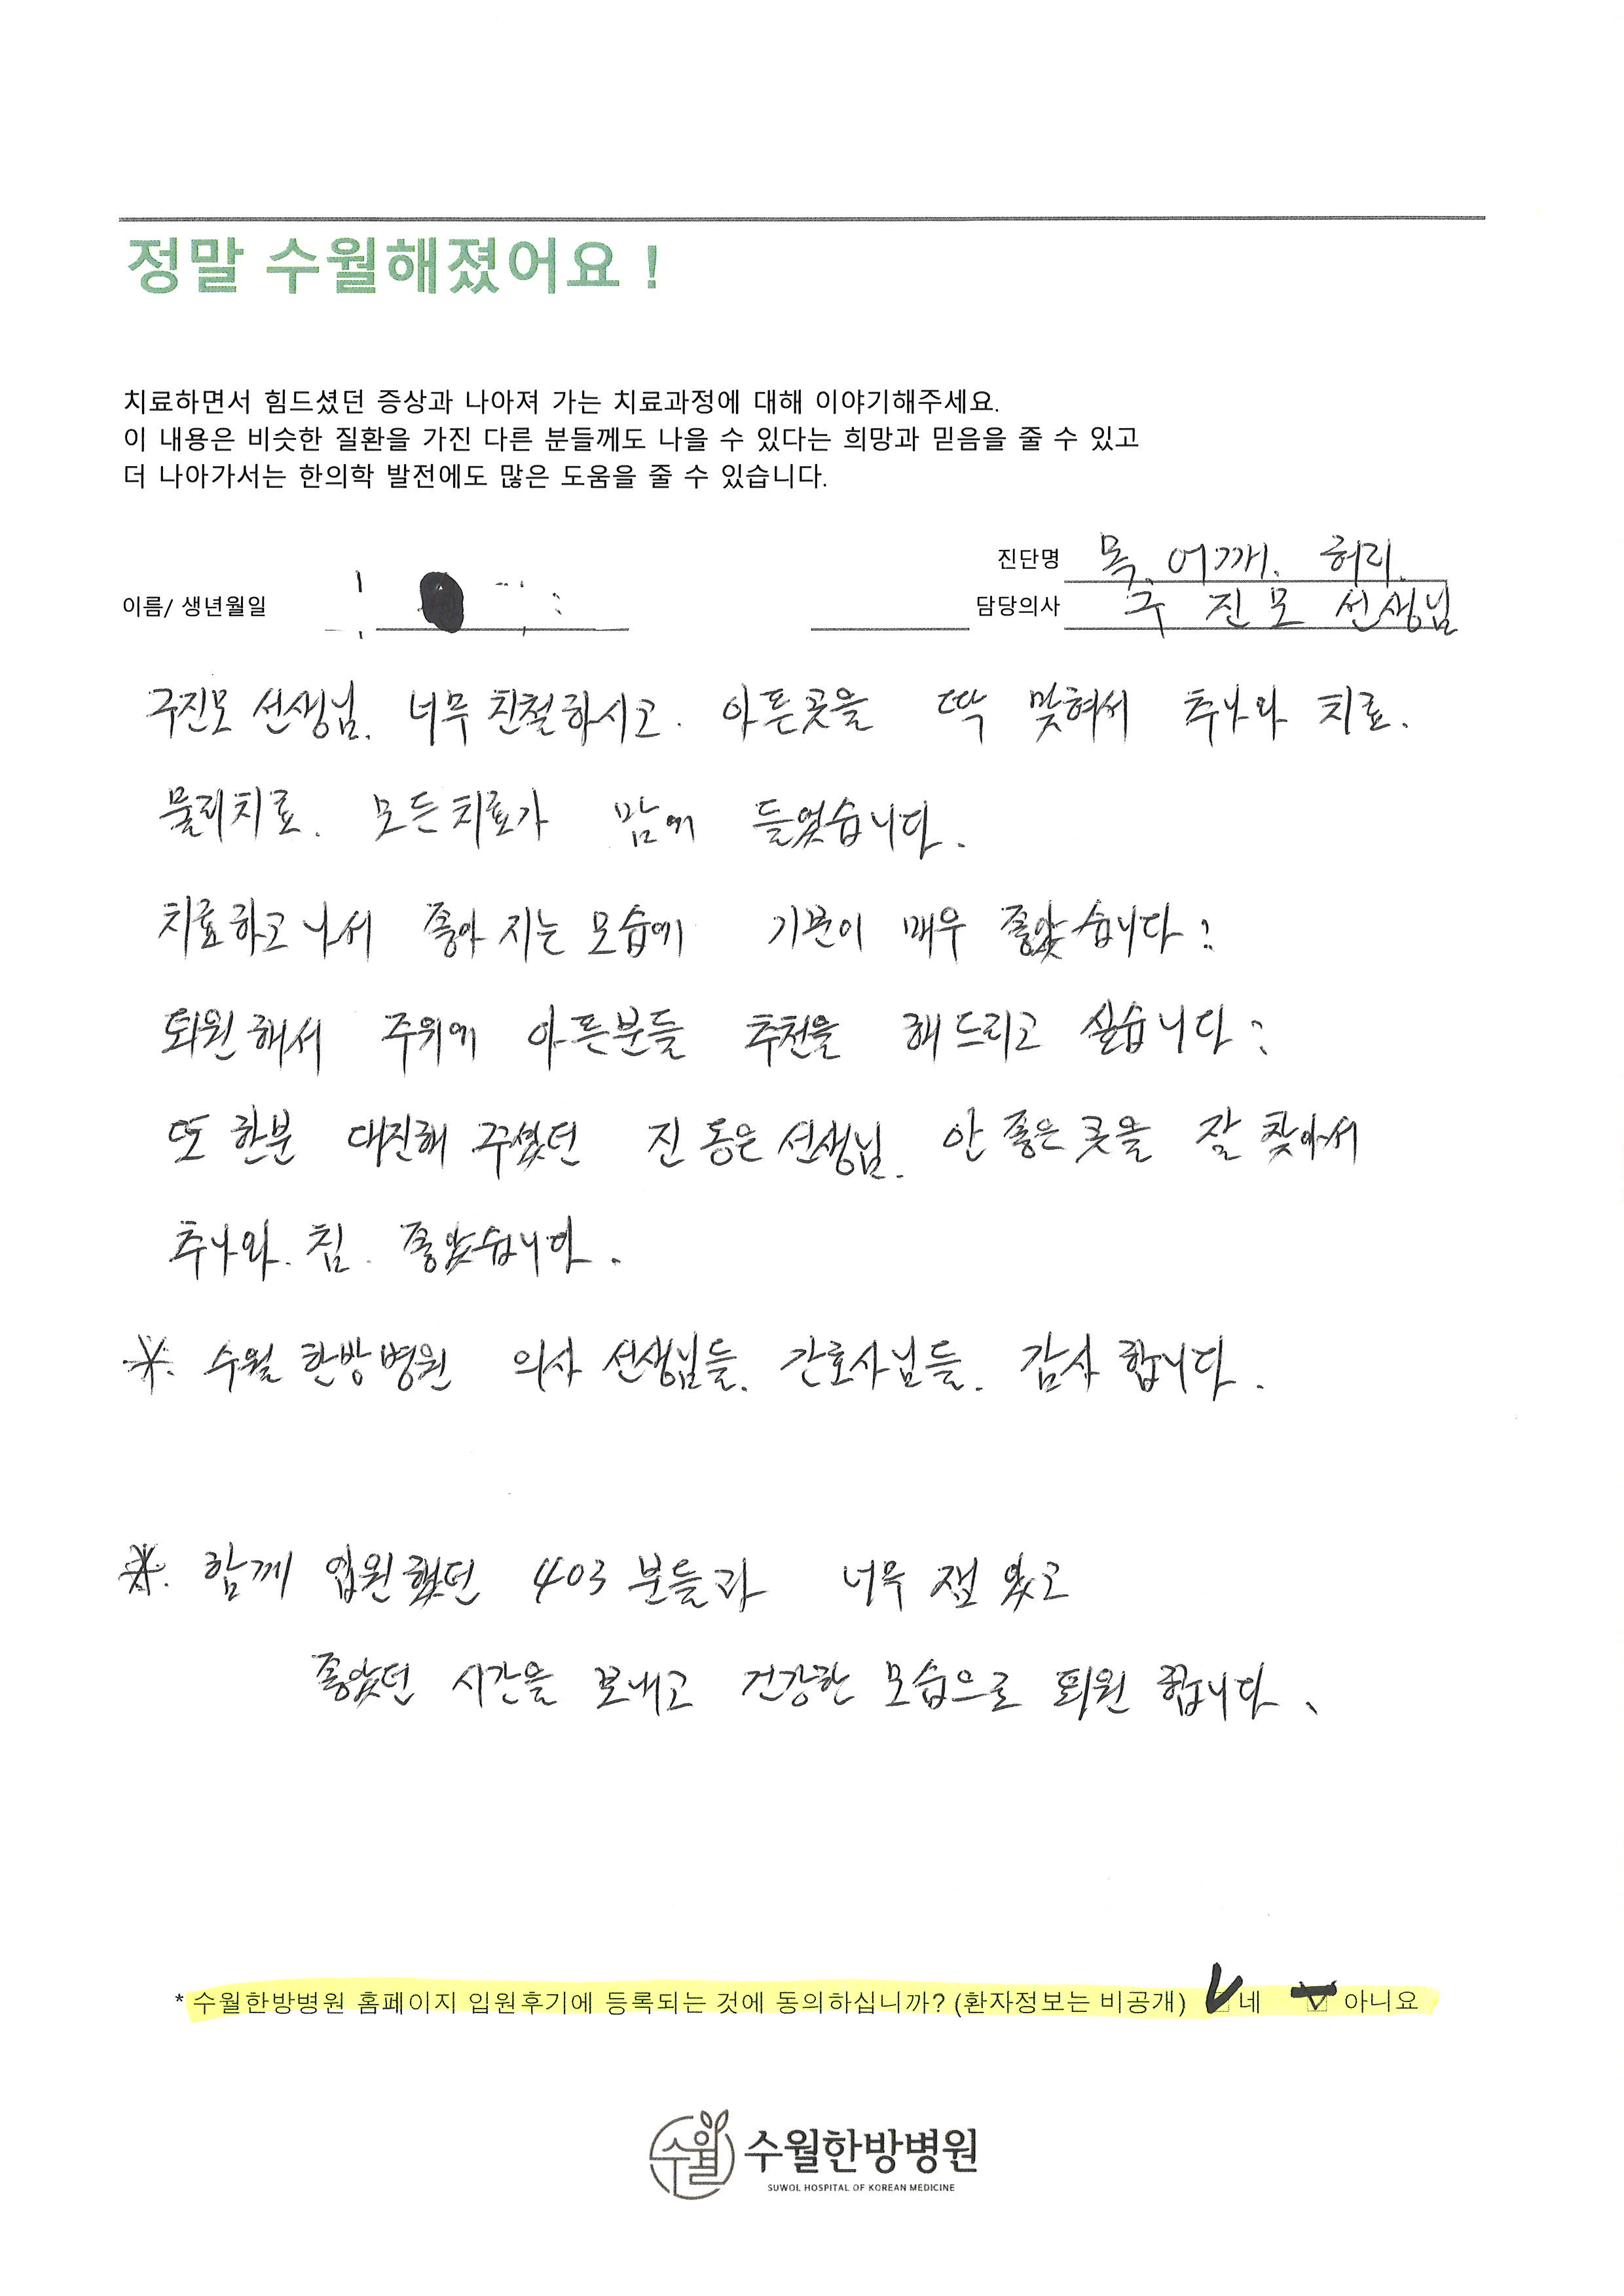 정말 수월해졌어요 !
치료하면서 힘드셨던 증상과 나아져 가는 치료과정에 대해 이야기해주세요.
이 내용은 비슷한 질환을 가진 다른 분들께도 나을 수 있다는 희망과 믿음을 줄 수 있고
더 나아가서는 한의학 발전에도 많은 도움을 줄 수 있습니다.
진단명 목. 어깨. 허리.
이름/ 생년월일 담당의사 구 진 모 선생님
구진모 선생님. 너무 친절하시고. 아픈곳을 딱 맞혀서 추나와 치료.
물리치료. 모든치료가 맘에 들었습니다.
치료하고 나서 좋아 지는 모습에 기분이 매우 좋았습니다:
퇴원해서 주위에 아픈분들 추천을 해드리고 싶습니다:
또 한분 대진해 주셨던 진동은 선생님. 안 좋은 곳을 잘 찾아서
추나와. 침. 좋았습니다.
※. 수월 한방병원 의사 선생님들. 간호사님들. 감사 합니다.
※. 함께 입원했던 403 분들과 너무 잼 있고
좋았던 시간을 보내고 건강한 모습으로 퇴원 합니다.
* 수월한방병원 홈페이지 입원후기에 등록되는 것에 동의하십니까? (환자정보는 비공개) 네 아니요
수월 수월한방병원
SUWOL HOSPITAL OF KOREAN MEDICINE